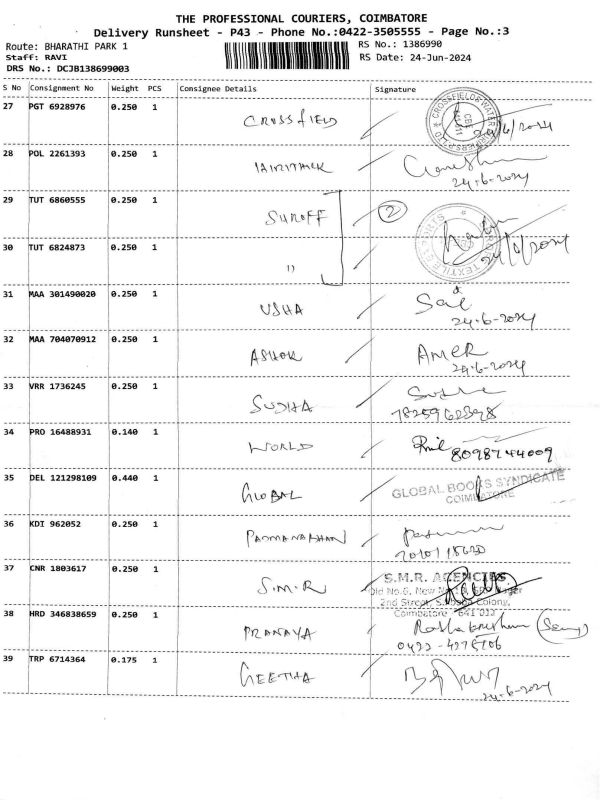 THE PROFESSIONAL COURIERS, COIMBATORE
Delivery Runsheet - P43 - Phone No.:0422-3505555 - Page No.:3
Route: BHARATHI PARK 1 RS No.: 1386990
Staff: RAVI RS Date: 24-Jun-2024
DRS No.: DCJB138699003
S No Consignment No Weight PCS Consignee Details Signature
27 PGT 6928976 0.250 1 CROSSFIELD 24/6/2024
28 POL 2261393 0.250 1
24-6-2024
29 TUT 6860555 0.250 1 SUROFF 2
30 TUT 6824873 0.250 1 " 24/6/2024
31 MAA 301490020 0.250 1 USHA Sal
24-6-2024
32 MAA 704070912 0.250 1 ASHOK AMER
24-6-2024
33 VRR 1736245 0.250 1 SUDHA
34 PRO 16488931 0.140 1 WORLD 8098744009
35 DEL 121298109 0.440 1 GLOBAL GLOBAL BOOKS SYNDICATE
COIMBATORE
36 KDI 962052 0.250 1 PADMANABHAN
37 CNR 1803617 0.250 1 S.M.R S.M.R. AGENCIES
Old No.6, New
2nd Street, Colony,
Coimbatore - 641 012
38 HRD 346838659 0.250 1 PRANAYA
39 TRP 6714364 0.175 1 GEETHA
24-6-2024